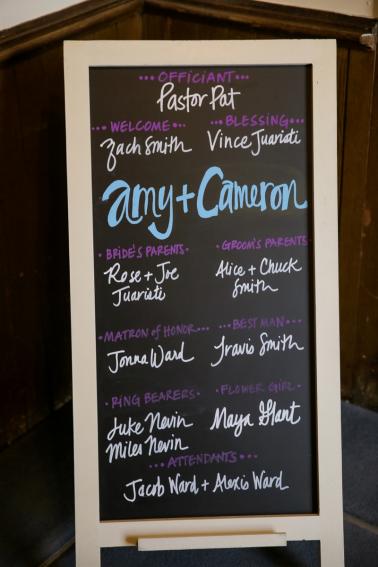 •••OFFICIANT•••
Pastor Pat
•••WELCOME••• •••BLESSING•••
Zach Smith Vince Juaristi
Amy+Cameron
•BRIDE'S PARENTS• •GROOM'S PARENTS•
Rose + Joe Alice + Chuck
Juaristi Smith
•MATRON of HONOR••• •••BEST MAN•••
Jonna Ward Travis Smith
•RING BEARERS• •FLOWER GIRL•
Luke Nevin Maya Grant
Miles Nevin
•••ATTENDANTS•••
Jacob Ward + Alexis Ward